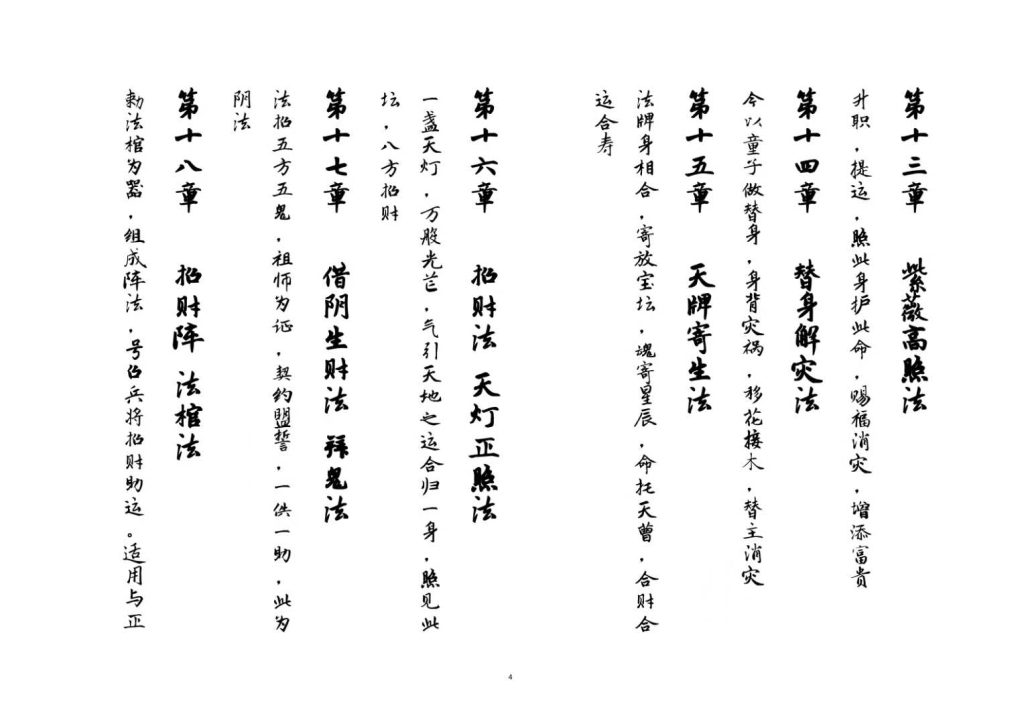 第十三章 紫薇高照法
升职，提运，照此身护此命，赐福消灾，增添富贵
第十四章 替身解灾法
今以童子做替身，身背灾祸，移花接木，替主消灾
第十五章 天牌寄生法
法牌身相合，寄放宝坛，魂寄星辰，命托天曹，合财合
运合寿
第十六章 招财法 天灯正照法
一盏天灯，万般光芒，气引天地之运合归一身，照见此
坛，八方招财
第十七章 借阴生财法 拜鬼法
法招五方五鬼，祖师为证，契约盟誓，一供一助，此为
阴法
第十八章 招财阵 法棺法
勅法棺为器，组成阵法，号伯兵将招财助运。适用与正
4